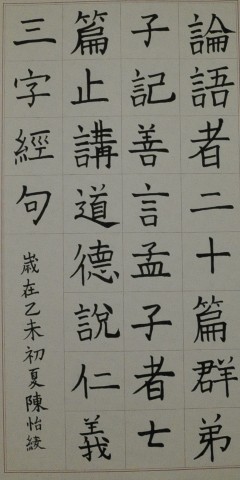 論語者二十篇群弟
子記善言孟子者七
篇止講道德說仁義
三字經句
歲在乙未初夏陳怡綾